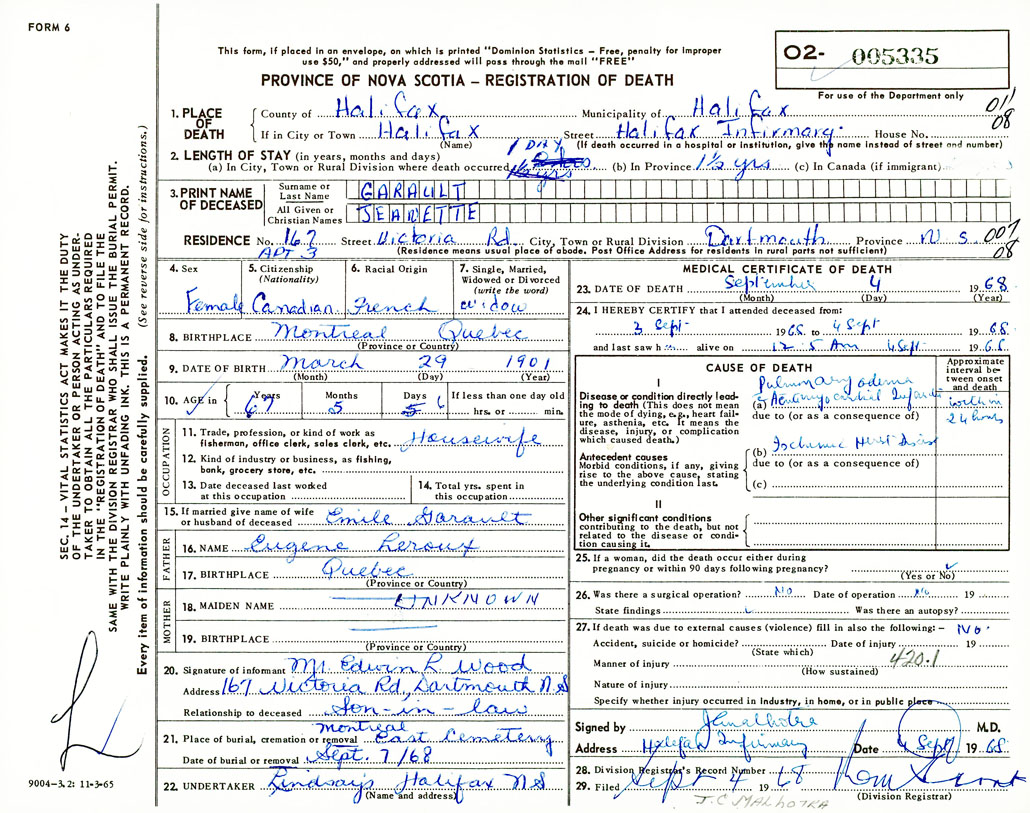 FORM 6
This form, if placed in an envelope, on which is printed "Dominion Statistics – Free, penalty for improper
use $50," and properly addressed will pass through the mail "FREE"
PROVINCE OF NOVA SCOTIA – REGISTRATION OF DEATH
02- 005335
For use of the Department only
011
08
1. PLACE OF DEATH
County of Halifax Municipality of Halifax
If in City or Town Halifax Street Halifax Infirmary House No.
(Name) (If death occurred in a hospital or institution, give the name instead of street and number)
2. LENGTH OF STAY (in years, months and days) 1 DAY
(a) In City, Town or Rural Division where death occurred 1½ yrs (b) In Province 1½ yrs (c) In Canada (if immigrant)
3. PRINT NAME OF DECEASED
Surname or Last Name GARAULT
All Given or Christian Names JEANETTE
RESIDENCE No. 167 Street Victoria Rd. City, Town or Rural Division Dartmouth Province N S. 007
APT 3 (Residence means usual place of abode. Post Office Address for residents in rural parts not sufficient) 08
4. Sex Female
5. Citizenship (Nationality) Canadian
6. Racial Origin French
7. Single, Married, Widowed or Divorced (write the word) widow
8. BIRTHPLACE Montreal Quebec
(Province or Country)
9. DATE OF BIRTH March 29 1901
(Month) (Day) (Year)
10. AGE in Years 67 Months 5 Days 5 6 If less than one day old
hrs. or min.
OCCUPATION
11. Trade, profession, or kind of work as fisherman, office clerk, sales clerk, etc. Housewife
12. Kind of industry or business, as fishing, bonk, grocery store, etc.
13. Date deceased last worked at this occupation
14. Total yrs. spent in this occupation
15. If married give name of wife or husband of deceased Emile Garault
FATHER
16. NAME Eugene Leroux
17. BIRTHPLACE Quebec
(Province or Country)
MOTHER
18. MAIDEN NAME UNKNOWN
19. BIRTHPLACE
(Province or Country)
20. Signature of informant Mr. Edwin R Wood
Address 167 Victoria Rd., Dartmouth N S
Relationship to deceased Son-in-law
21. Place of burial, cremation or removal Montreal East Cemetery
Date of burial or removal Sept. 7/68
22. UNDERTAKER Lindsay's Halifax N S
(Name and address)
MEDICAL CERTIFICATE OF DEATH
23. DATE OF DEATH September 4 1968
(Month) (Day) (Year)
24. I HEREBY CERTIFY that I attended deceased from:
3 Sept 1968 to 4 Sept 1968
and last saw h alive on 12-5 Am 4 Sept 1968
CAUSE OF DEATH
Approximate interval between onset and death
I
Disease or condition directly leading to death (This does not mean the mode of dying, e.g., heart failure, asthenia, etc. It means the disease, injury, or complication which caused death.)
Pulmonary odema
(a) Acute myocardial Infarct within
due to (or as a consequence of) 24 hours
Antecedent causes
Morbid conditions, if any, giving rise to the above cause, stating the underlying condition last.
(b) Ischemic Heart Disease
due to (or as a consequence of)
(c)
II
Other significant conditions contributing to the death, but not related to the disease or condition causing it.
25. If a woman, did the death occur either during pregnancy or within 90 days following pregnancy?
(Yes or No)
26. Was there a surgical operation? No Date of operation No 19
State findings Was there an autopsy?
27. If death was due to external causes (violence) fill in also the following:– No.
Accident, suicide or homicide? Date of injury 19
(State which)
Manner of injury 420.1
(How sustained)
Nature of injury
Specify whether injury occurred in Industry, in home, or in public place
Signed by JCmalhotra M.D.
Address Halifax Infirmary Date 4 Sept 1968
28. Division Registrar's Record Number
29. Filed Sept 4 1968
(Division Registrar)
J.C MALHOTRA
SEC. 14 – VITAL STATISTICS ACT MAKES IT THE DUTY
OF THE UNDERTAKER OR PERSON ACTING AS UNDER-
TAKER TO OBTAIN ALL THE PARTICULARS REQUIRED
IN THE "REGISTRATION OF DEATH" AND TO FILE THE
SAME WITH THE DIVISION REGISTRAR WHO SHALL ISSUE THE BURIAL PERMIT.
WRITE PLAINLY WITH UNFADING INK. THIS IS A PERMANENT RECORD.
Every item of information should be carefully supplied. (See reverse side for instructions.)
9004-3.2: 11-3-65